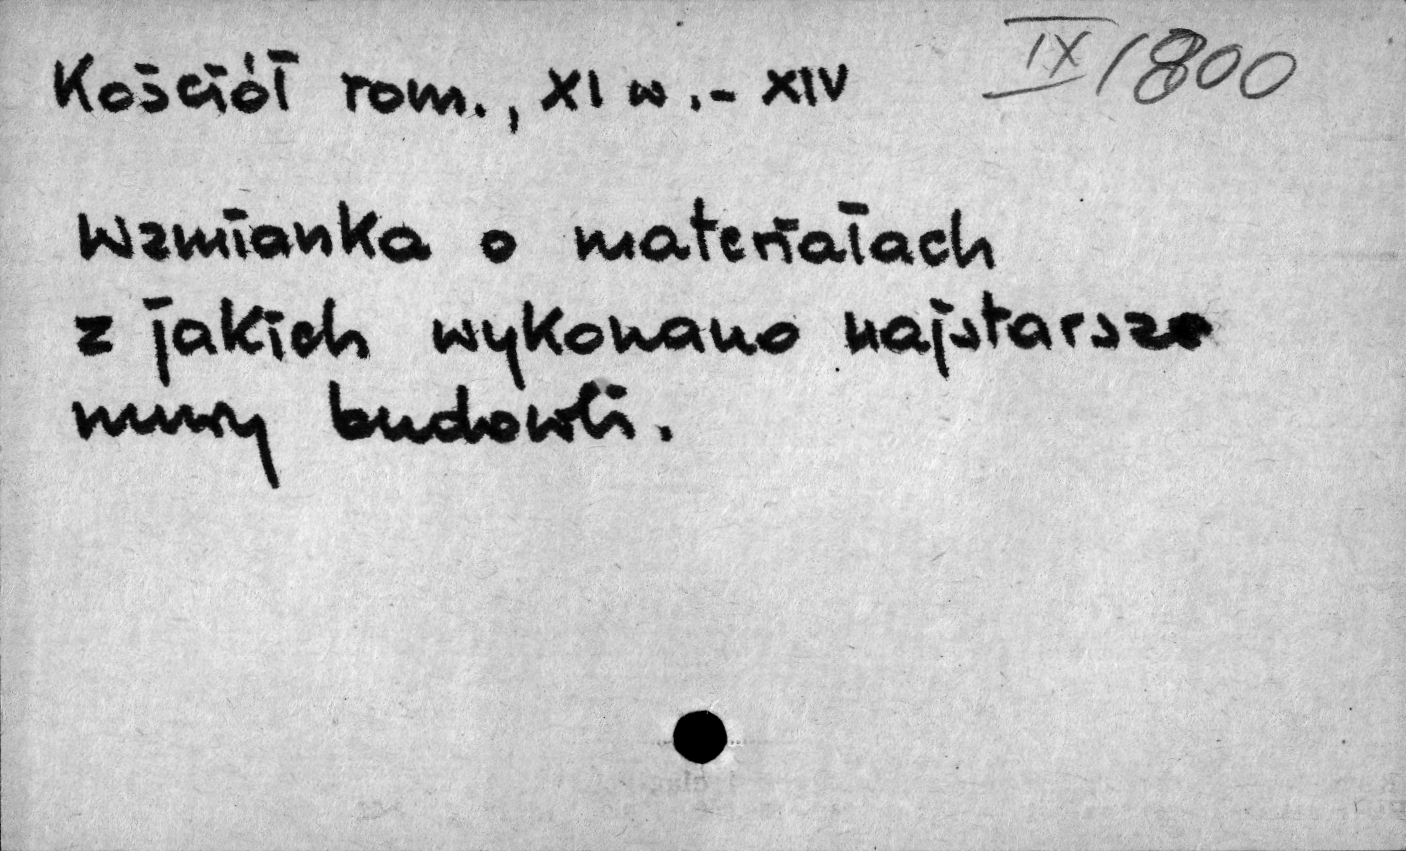 Kościół rom., XI w.- XIV IX/800
Wzmianka o materiałach
z jakich wykonano najstarsze
mury budowli.